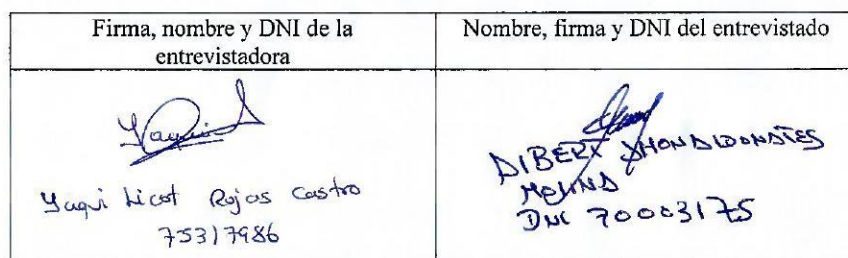 Firma, nombre y DNI de la
entrevistadora
Nombre, firma y DNI del entrevistado
Yaqui Licet Rojas Castro
75317986
DIBERT
MOLINA
DNI 70003175